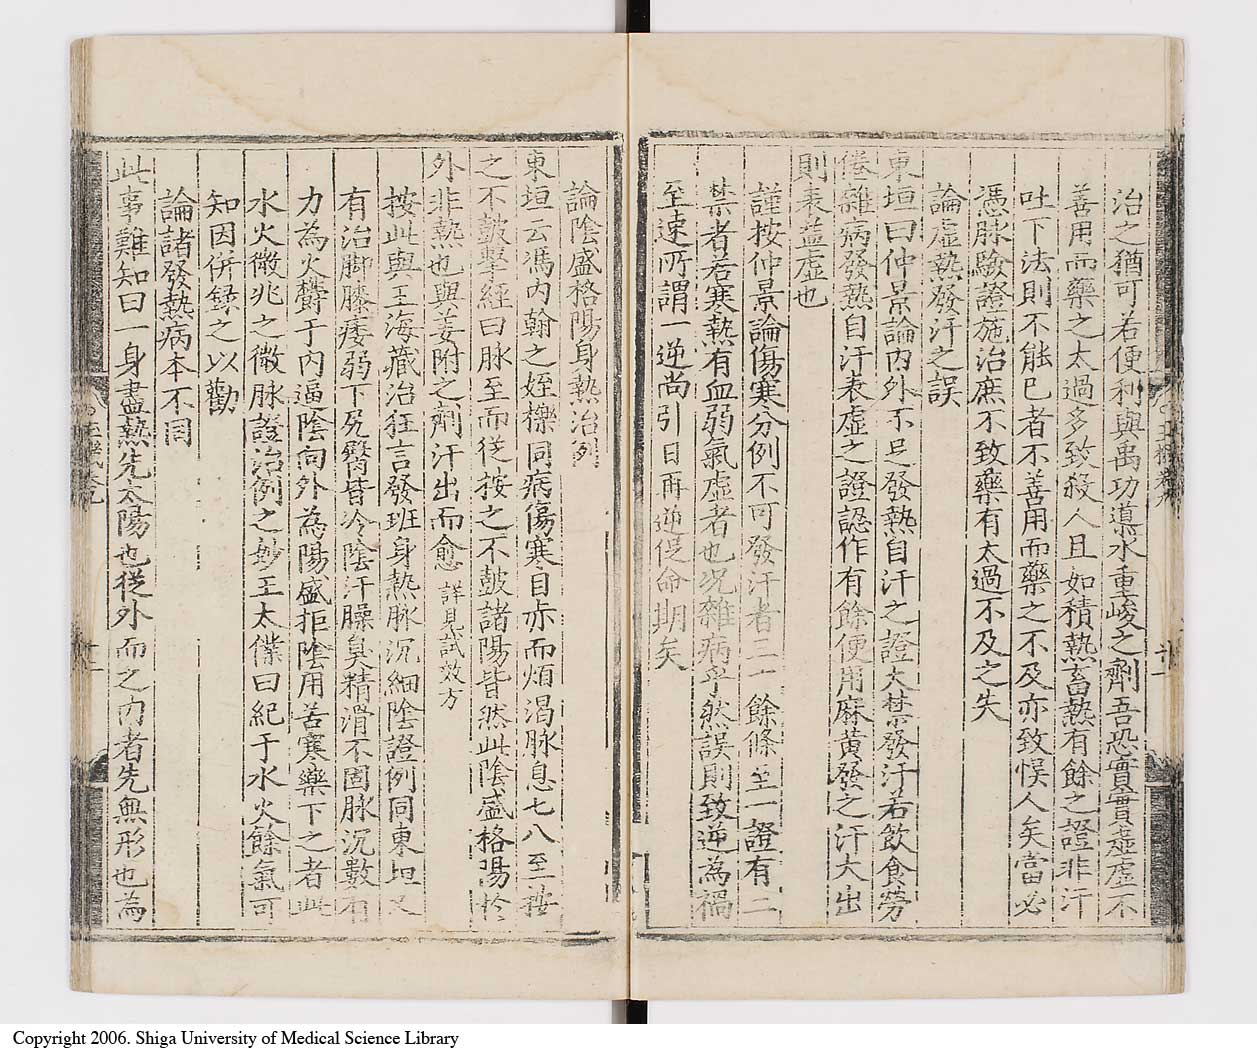 治之猶可若便利與禹功導水重峻之劑吾恐實實虛虛不
善用而藥之太過多致殺人且如積熱畜熱有餘之證非汗
吐下法則不能已者不善用而藥之不及亦致悞人矣當必
憑脉驗證施治庶不致藥有太過不及之失
論虛熱發汗之誤
東垣曰仲景論內外不足發熱自汗之證大禁發汗若飲食勞
倦雜病發熱自汗表虛之證認作有餘便用麻黃發之汗大出
則表益虛也
謹按仲景論傷寒分例不可發汗者三一餘條至一證有二
禁者若寒熱有血弱氣虛者也况雜病乎然誤則致逆為禍
至速所謂一逆尚引日再逆促命期矣
論陰盛格陽身熱治列
東垣云馮內翰之姪櫟同病傷寒目赤而煩渴脉息七八至按
之不皷擊經曰脉至而從按之不皷諸陽皆然此陰盛格陽於
外非熱也與姜附之劑汗出而愈 詳見試效方
按此與王海藏治狂言發班身熱脉沉細陰證例同東垣又
有治脚膝痿弱下尻臀皆冷陰汗臊臭精滑不固脉沉數有
力為火欝于內逼陰向外為陽盛拒陰用苦寒藥下之者此
水火徵兆之微脉證治例之妙王太僕曰紀于水火餘氣可
知因併錄之以勸
論諸發熱病本不同
此事難知曰一身盡熱先太陽也從外而之內者先無形也為